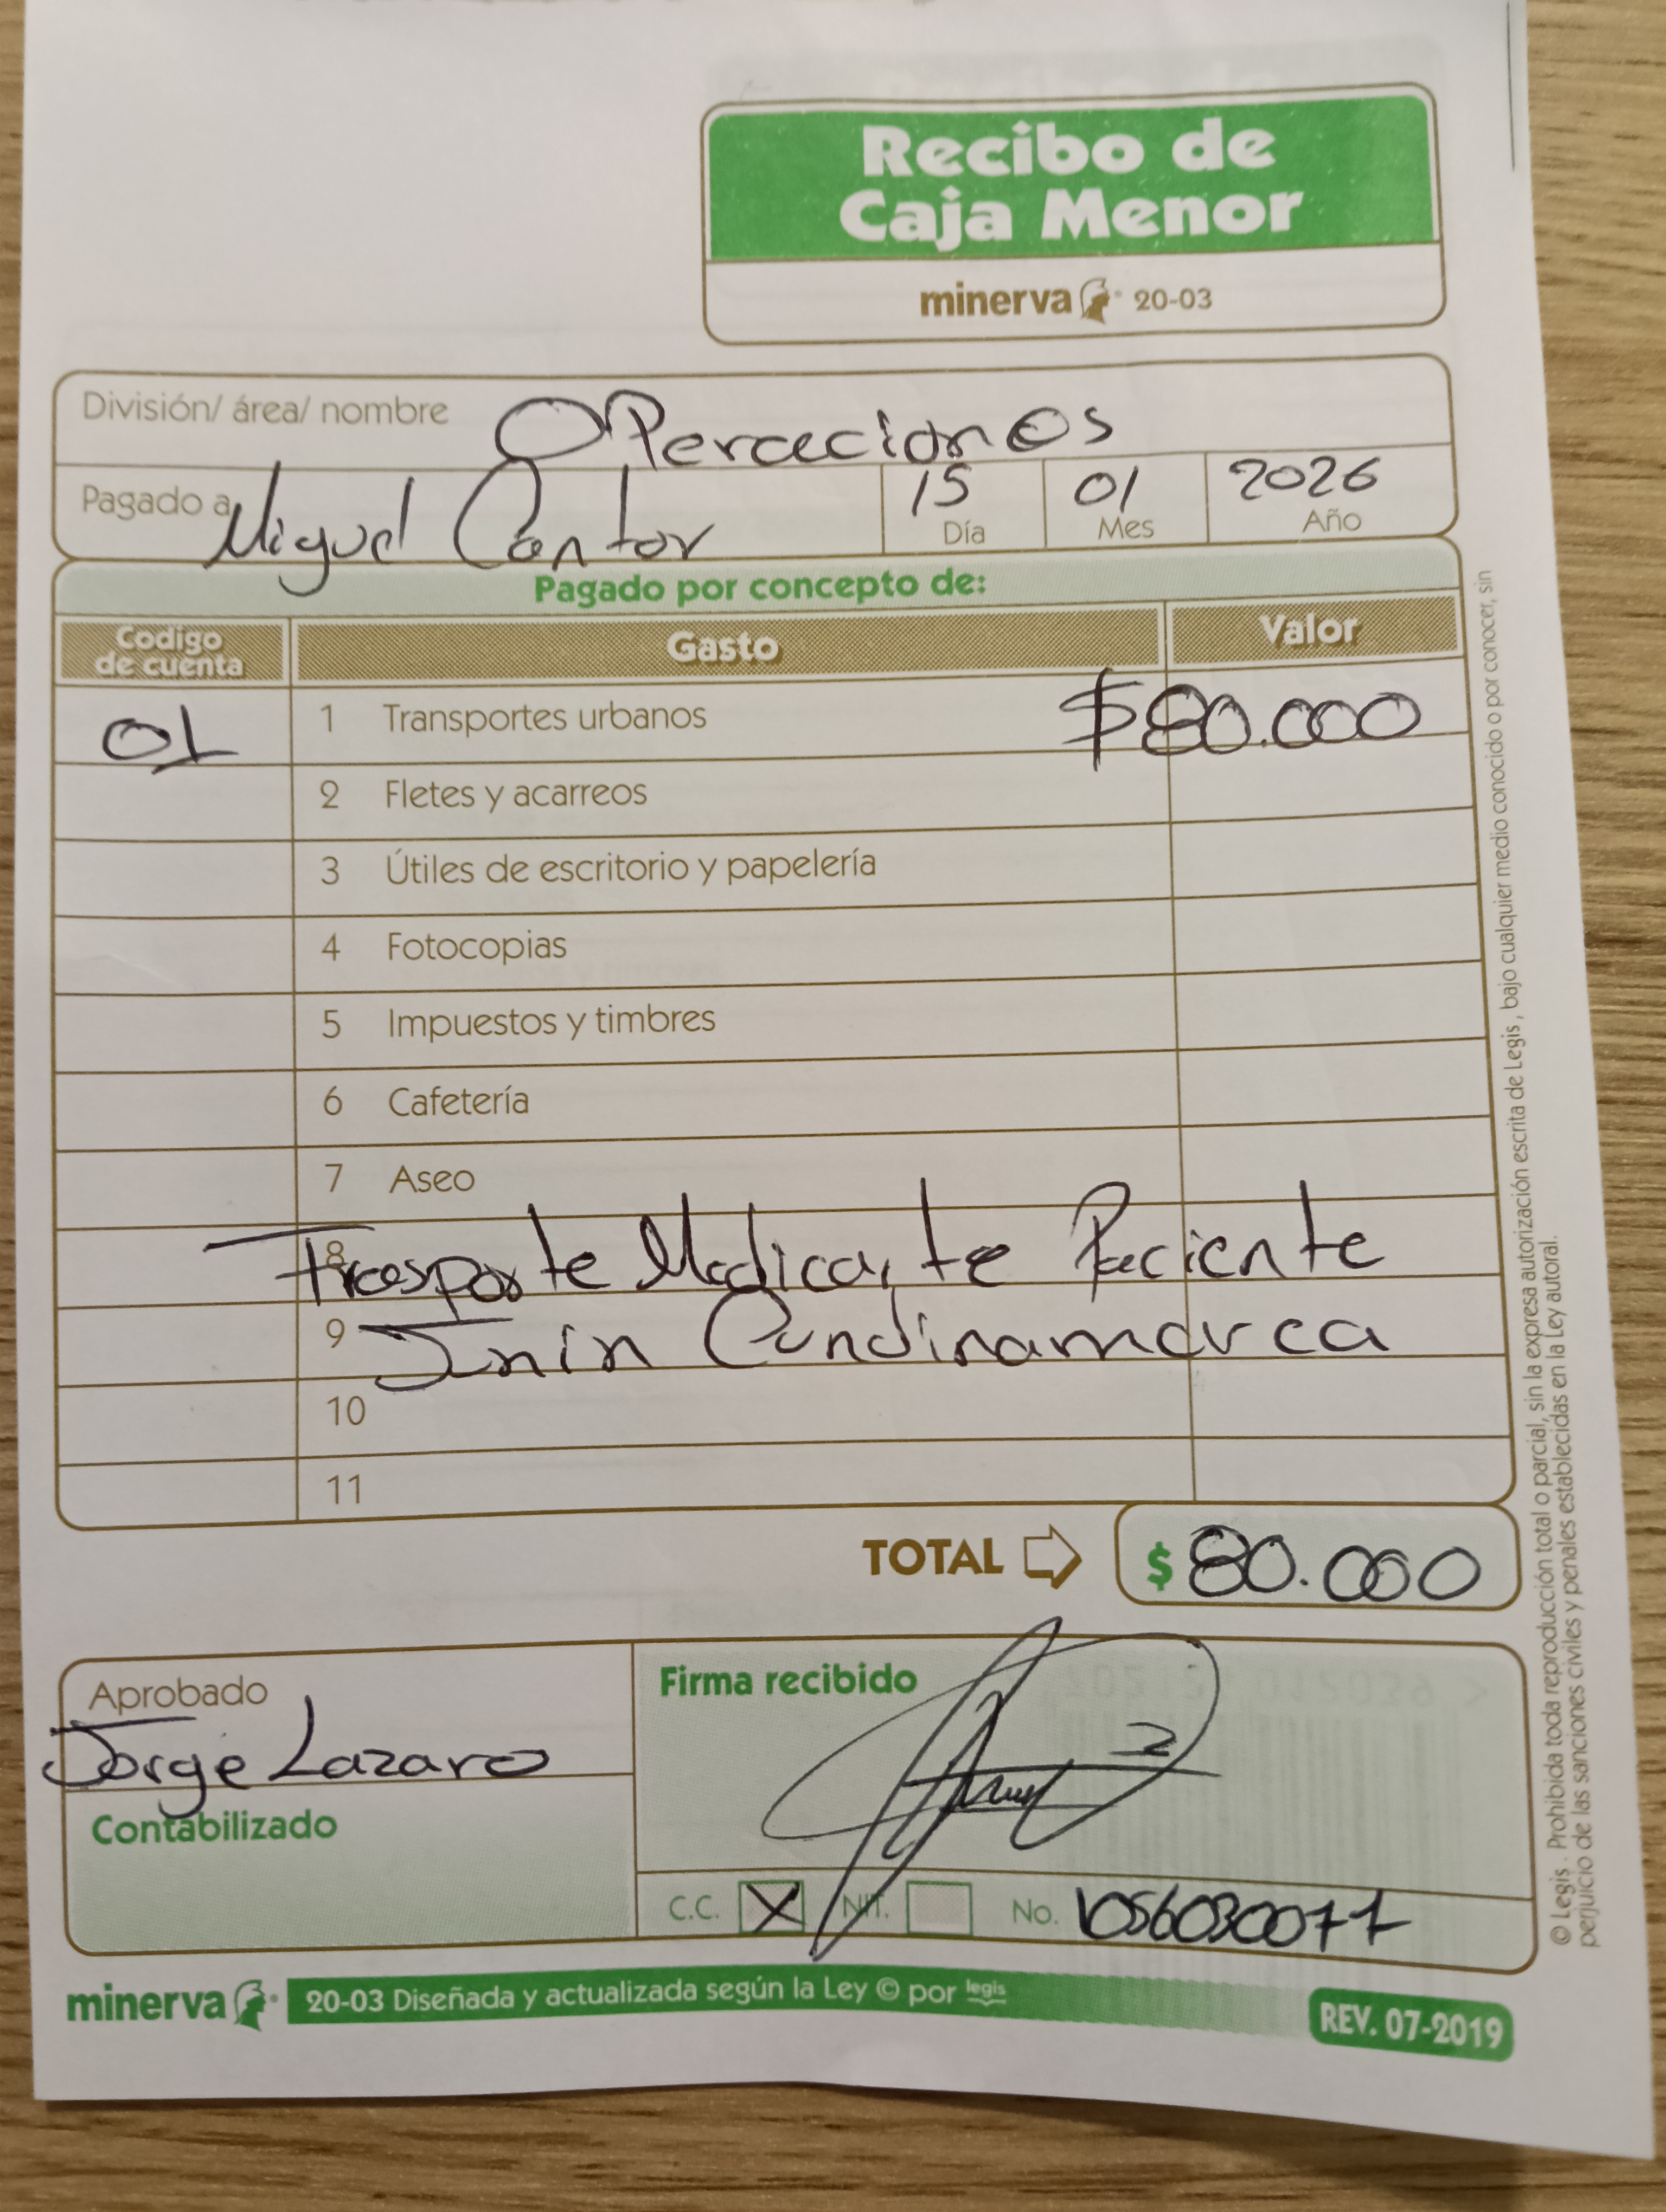 Recibo de
Caja Menor
minerva 20-03
División/ área/ nombre OPeraciones
Pagado a Miguel Cantor 15 Día 01 Mes 2026 Año
Pagado por concepto de:
Codigo de cuenta Gasto Valor
01 1 Transportes urbanos $80.000
2 Fletes y acarreos
3 Útiles de escritorio y papelería
4 Fotocopias
5 Impuestos y timbres
6 Cafetería
7 Aseo
8 Trasporte Medica, te Paciente
9 Junin Cundinamarca
10
11
TOTAL $ 80.000
Aprobado Jorge Lazaro
Firma recibido
Contabilizado
C.C. X NIT. No. 1056030077
minerva 20-03 Diseñada y actualizada según la Ley © por legis
REV. 07-2019
© Legis . Prohibida toda reproducción total o parcial, sin la expresa autorización escrita de Legis , bajo cualquier medio conocido o por conocer, sin
perjuicio de las sanciones civiles y penales establecidas en la Ley autoral.